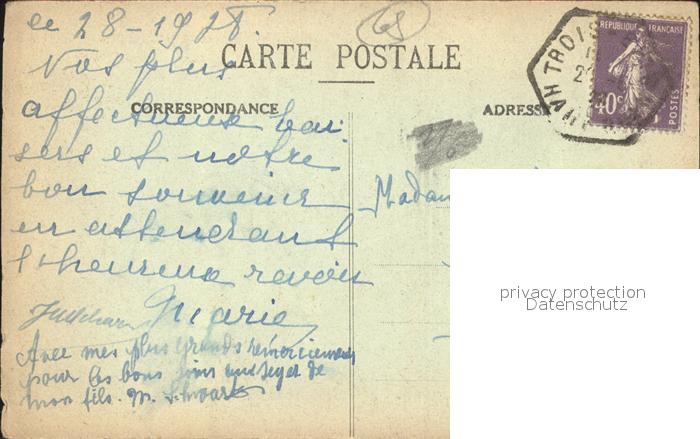 ce 28-1928.
CARTE POSTALE
CORRESPONDANCE
ADRESSE
68
TROIS
HAUT
RÉPUBLIQUE FRANÇAISE
40c
POSTES
Nos plus
affectueux bai
sers et notre
bon souvenir
en attendant
l'heureux revoir
Marie
Madam
Avec mes plus grands remerciements
pour les bons soins
mon fils. M. Schwartz
privacy protection
Datenschutz